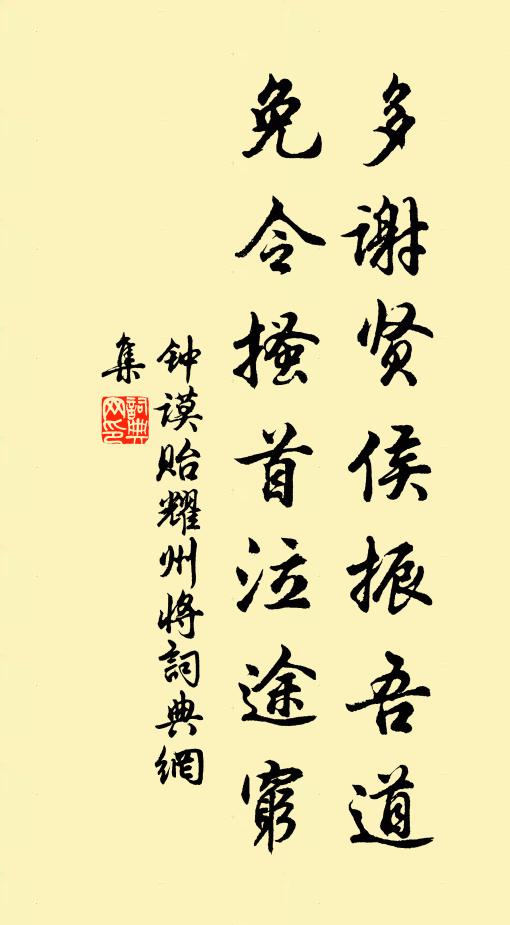 多谢贤侯振吾道
免令搔首泣途穷
钟谟贻耀州将詞典網
集
詞典
网印